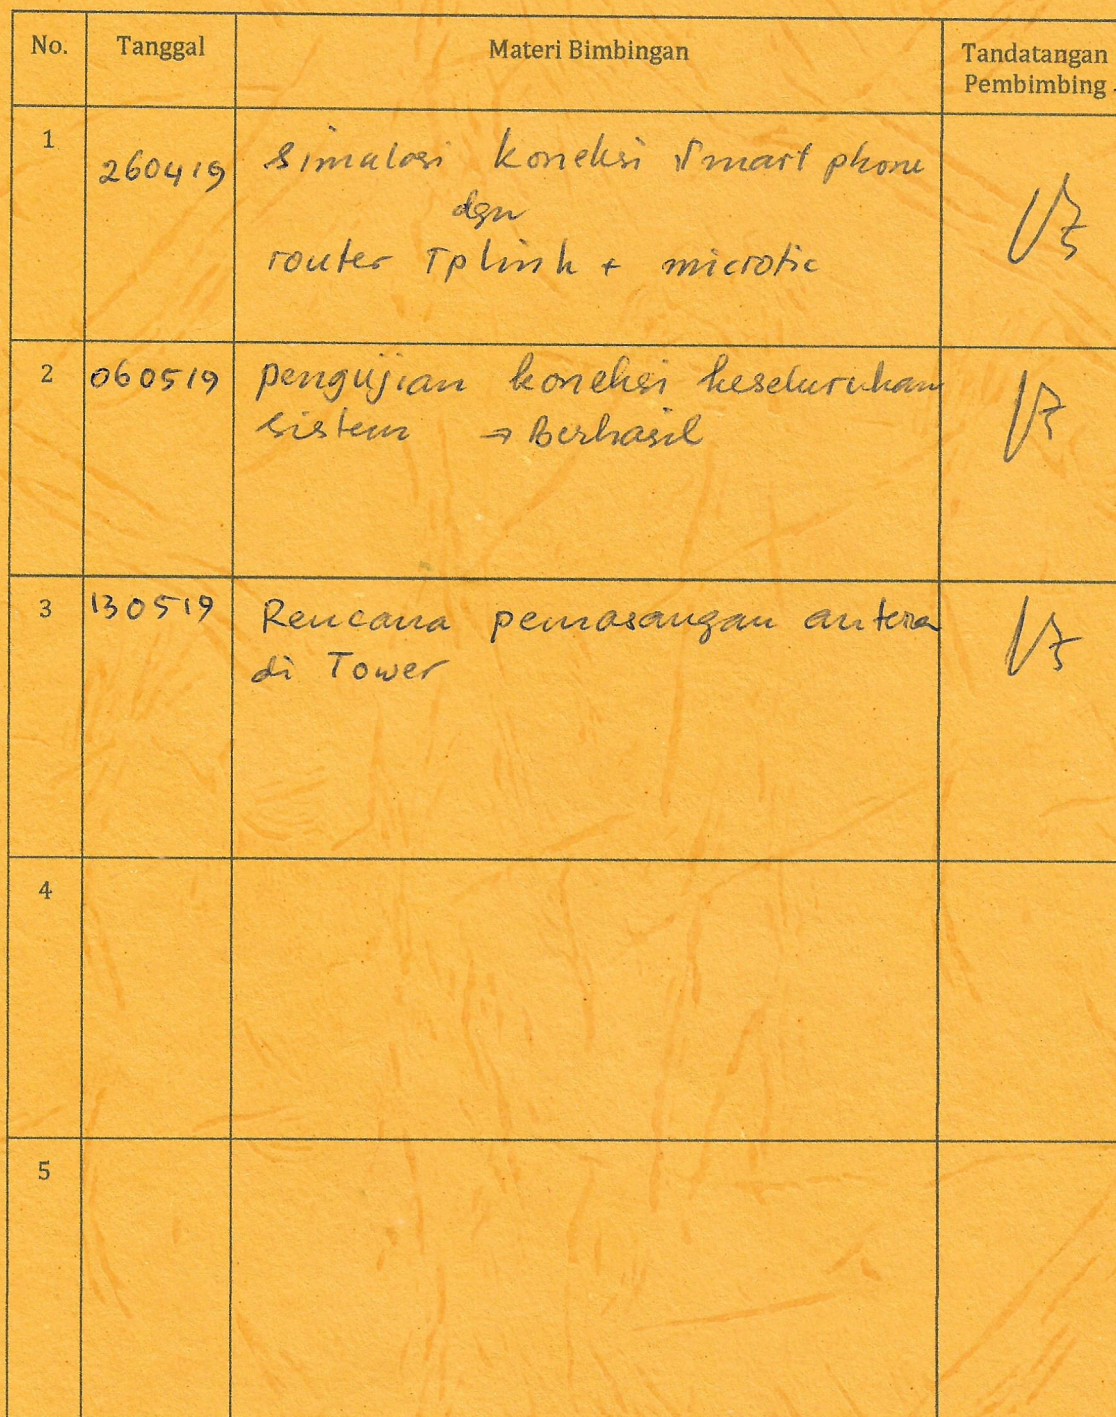 No. Tanggal Materi Bimbingan Tandatangan
Pembimbing
1 260419 Simulasi koneksi Smart phone
dgn
router Tplink + microtic
2 060519 pengujian koneksi keseluruhan
sistem → Berhasil
3 130519 Rencana pemasangan antena
di Tower
4
5